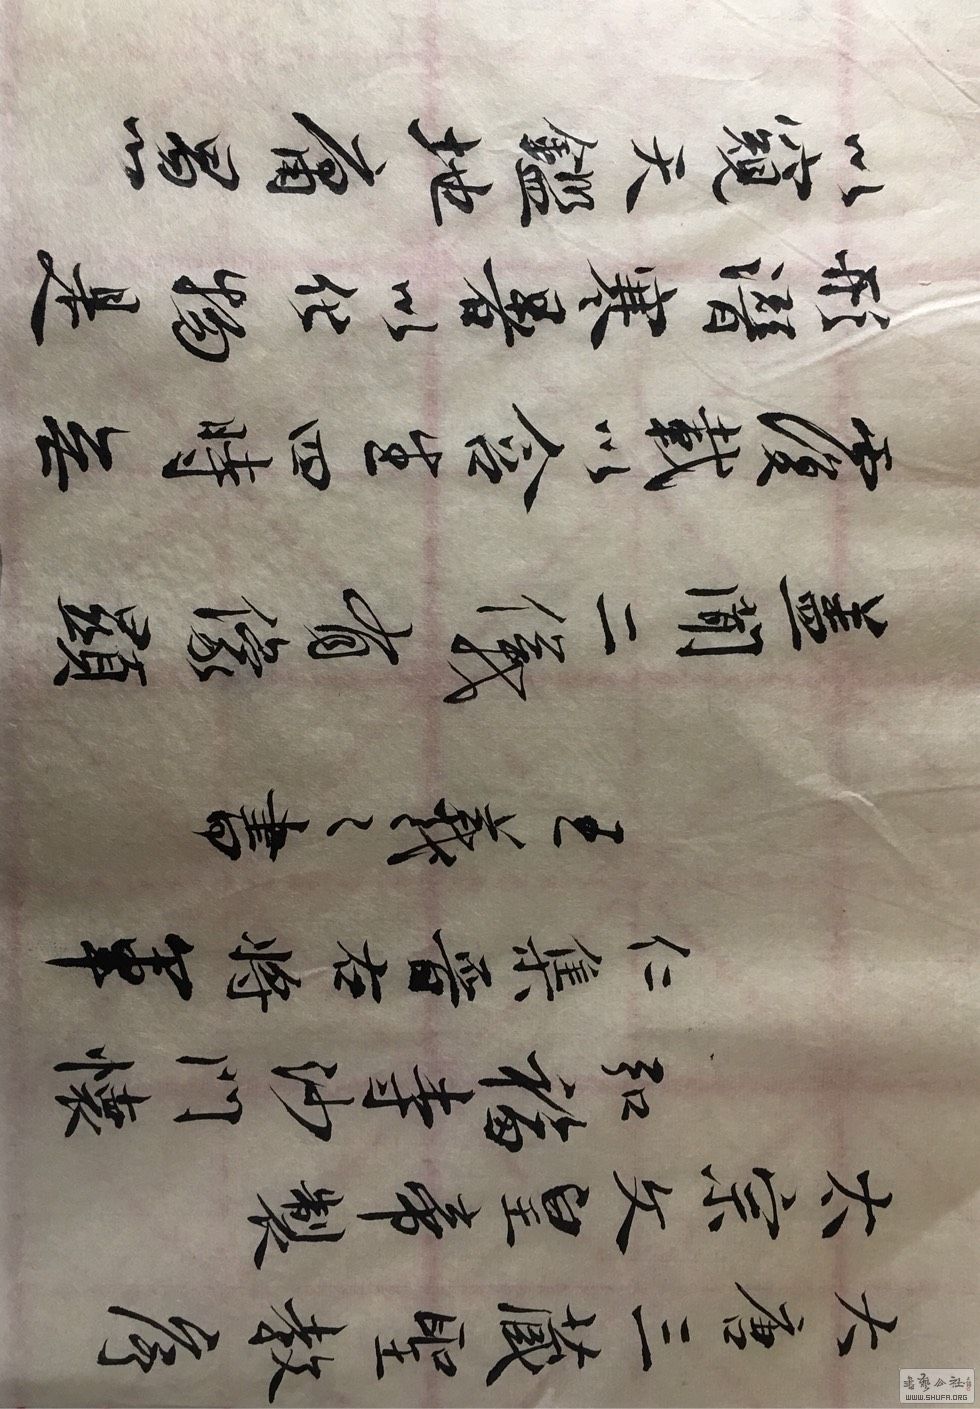 大唐三藏聖教序
太宗文皇帝製
弘福寺沙門懷
仁集晉右將軍
王羲之書
蓋聞二儀有像顯
覆載以含生四時无
形潛寒暑以化物是
以窺天鑑地庸愚
書藝公社
WWW.SHUFA.ORG